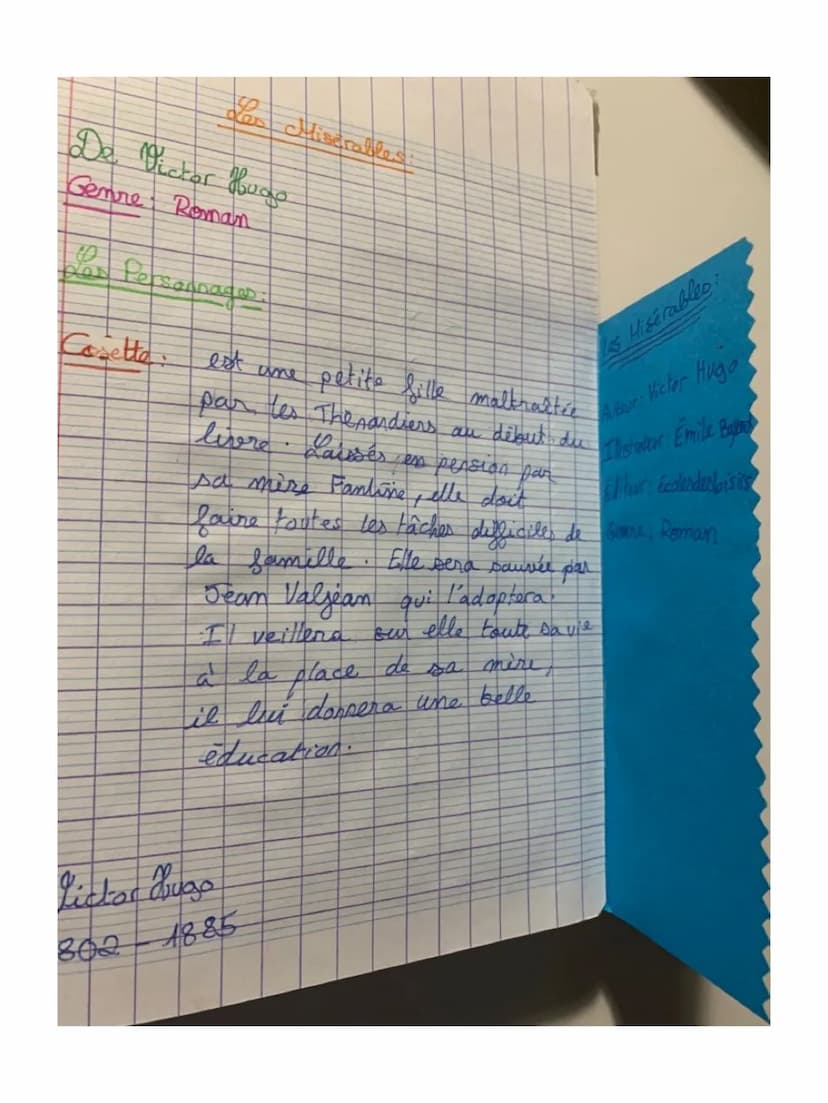 Les Misérables:
De Victor Hugo
Genre: Roman
Les Personnages:
Cosette: est une petite fille maltraitée
par les Thenardiers au début du
livre. Laissés en pension par
sa mère Fantine, elle doit
faire toutes les tâches difficiles de
la famille. Elle sera sauvée par
Jean Valjean qui l'adoptera.
Il veillera sur elle toute sa vie
à la place de sa mère,
il lui donnera une belle
éducation.
Victor Hugo
802 - 1885
Les Misérables:
Auteur: Victor Hugo
Illustrateur: Émile Bayard
Editeur: Ecoledesloisirs
Genre: Roman